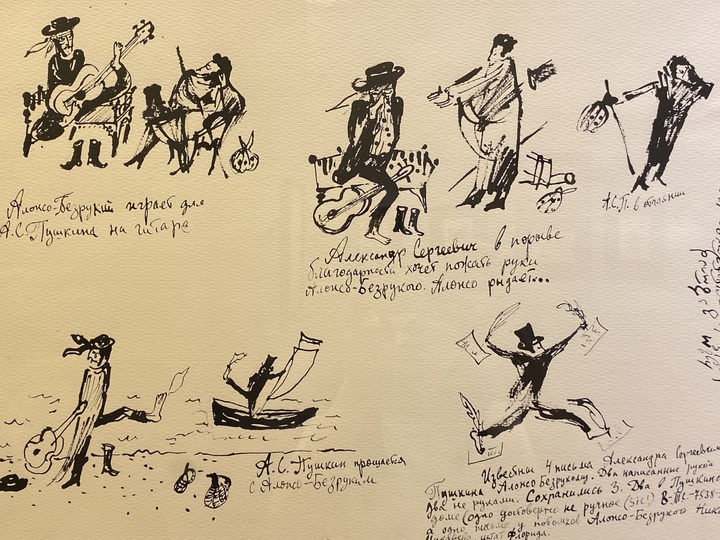 Алонсо-Безрукий играет для
А.С.Пушкина на гитаре
Александр Сергеевич в порыве
благодарности хочет пожать руки
Алонсо-Безрукого. Алонсо рыдает...
А.С.П. в отчаянии
А.С.Пушкин прощается
с Алонсо-Безруким
Известны 4 письма Александра Сергеевича
Пушкина Алонсо Безрукому. Два написанные рукой
два не руками. Сохранились 3. Два в Пушкинс
доме (одно достоверно не ручное (sic!)
а одно письмо у потомков Алонсо-Безрукого
штат Флорида.